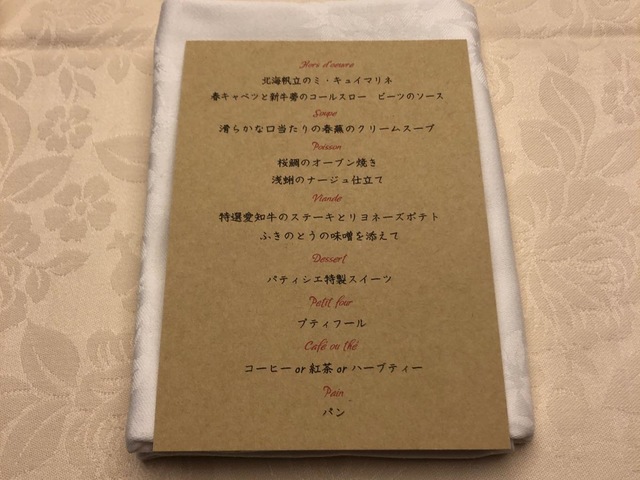 Hors d'œuvre
北海帆立のミ・キュイマリネ
春キャベツと新牛蒡のコールスロー ビーツのソース
Soupe
滑らかな口当たりの春蕪のクリームスープ
Poisson
桜鯛のオーブン焼き
浅蜊のナージュ仕立て
Viande
特選愛知牛のステーキとリヨネーズポテト
ふきのとうの味噌を添えて
Dessert
パティシエ特製スイーツ
Petit four
プティフール
Café ou thé
コーヒー or 紅茶 or ハーブティー
Pain
パン